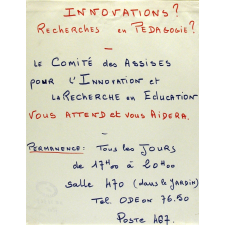 INNOVATIONS?
RECHERCHES en PEDAGOGIE?
LE COMITÉ DES ASSISES
POUR L'INNOVATION et
LA RECHERCHE en EDUCATION
VOUS ATTEND et VOUS AIDERA.
PERMANENCE: TOUS les JOURS
de 17H00 à 20H00
salle 470 (dans le JARDIN)
Tel. ODEON 76.50
POSTE 487.